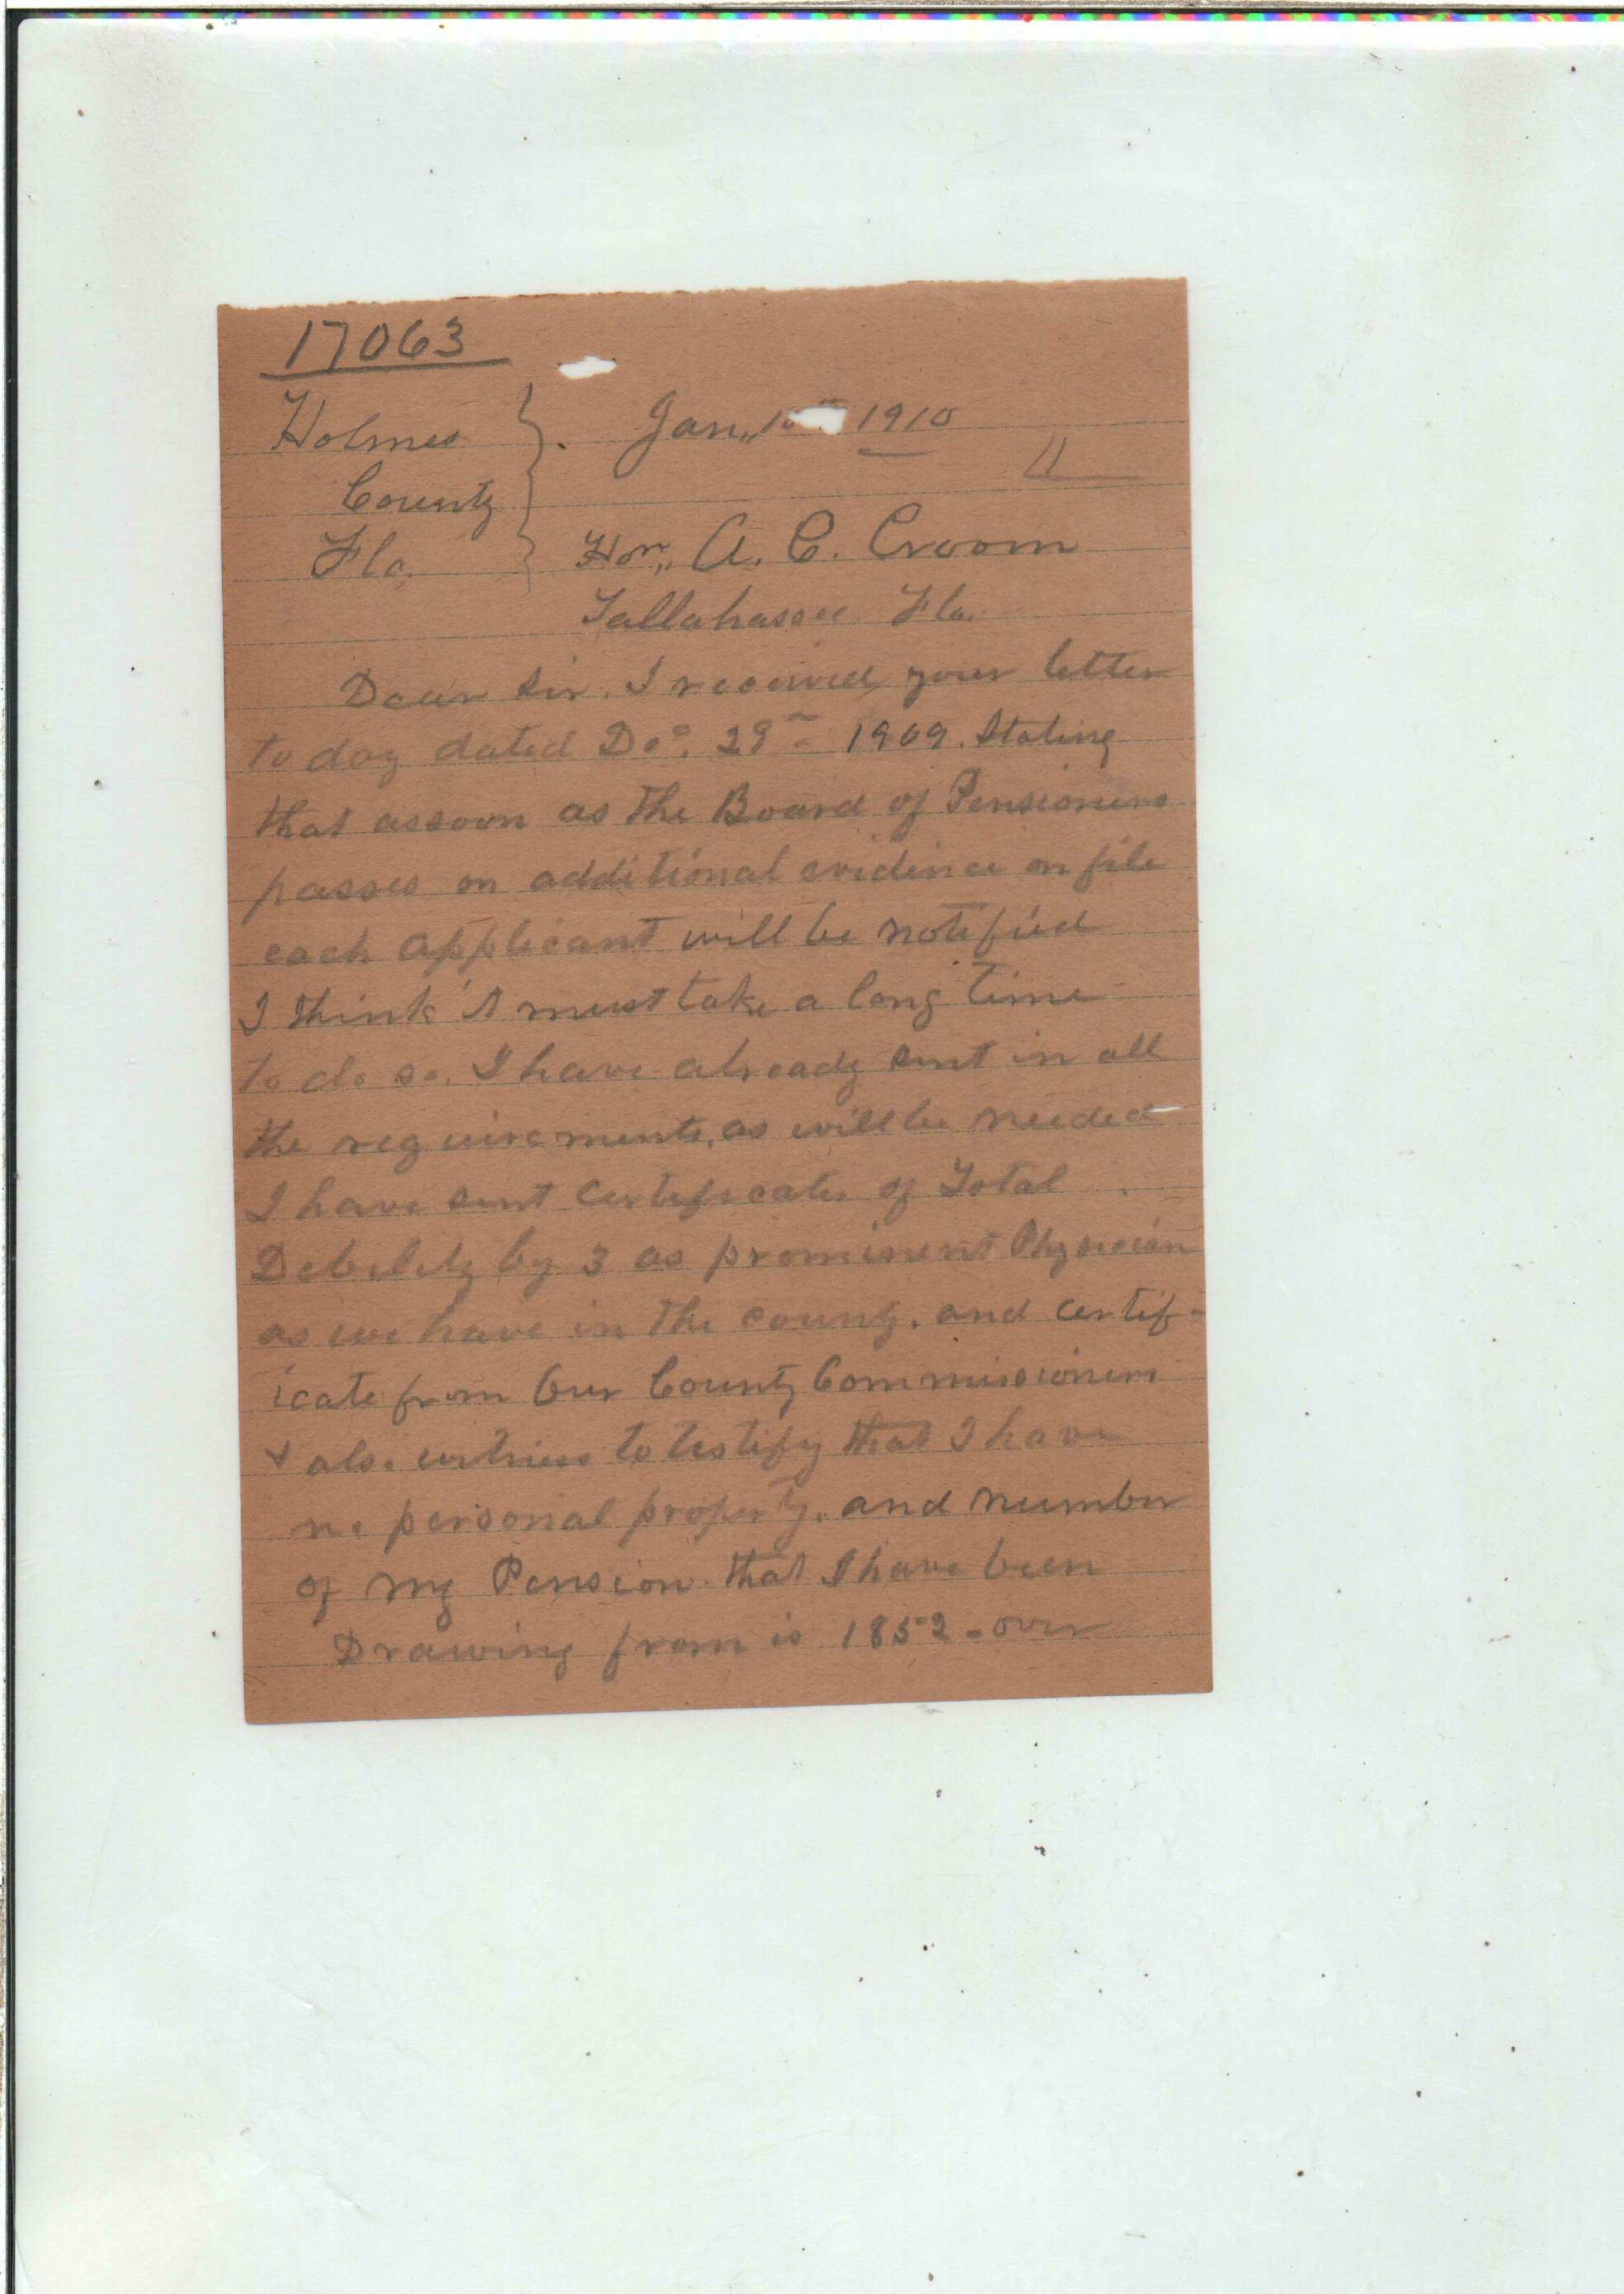 17063
Holmes } Jan,, 10th 1910
County
Fla. } Hon,, A. C. Croom
Tallahassee Fla.
Dear Sir. I received your letter
to day dated Dec. 29th 1909. Stating
that assoon as the Board of Pensioners
passes on additional evidence on file
each applicant will be notified
I think it must take a long time
to do so. I have already sent in all
the requirements, as will be needed
I have sent certificates of Total
Debility by 3 as prominent Physician
as we have in the county. and certif-
icate from Our County Commissioners
& also witness to testify that I have
no personal property. and number
of my Pension that I have been
Drawing from is 1852 - over